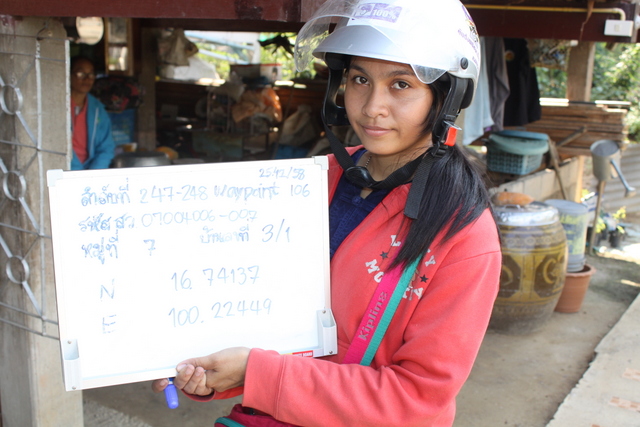 25/12/58
ลำดับที่ 247-248 waypoint 106
รหัส สว 07004006-007
หมู่ที่ 7 บ้านเลขที่ 3/1
N 16.74137
E 100.22449
Kipling